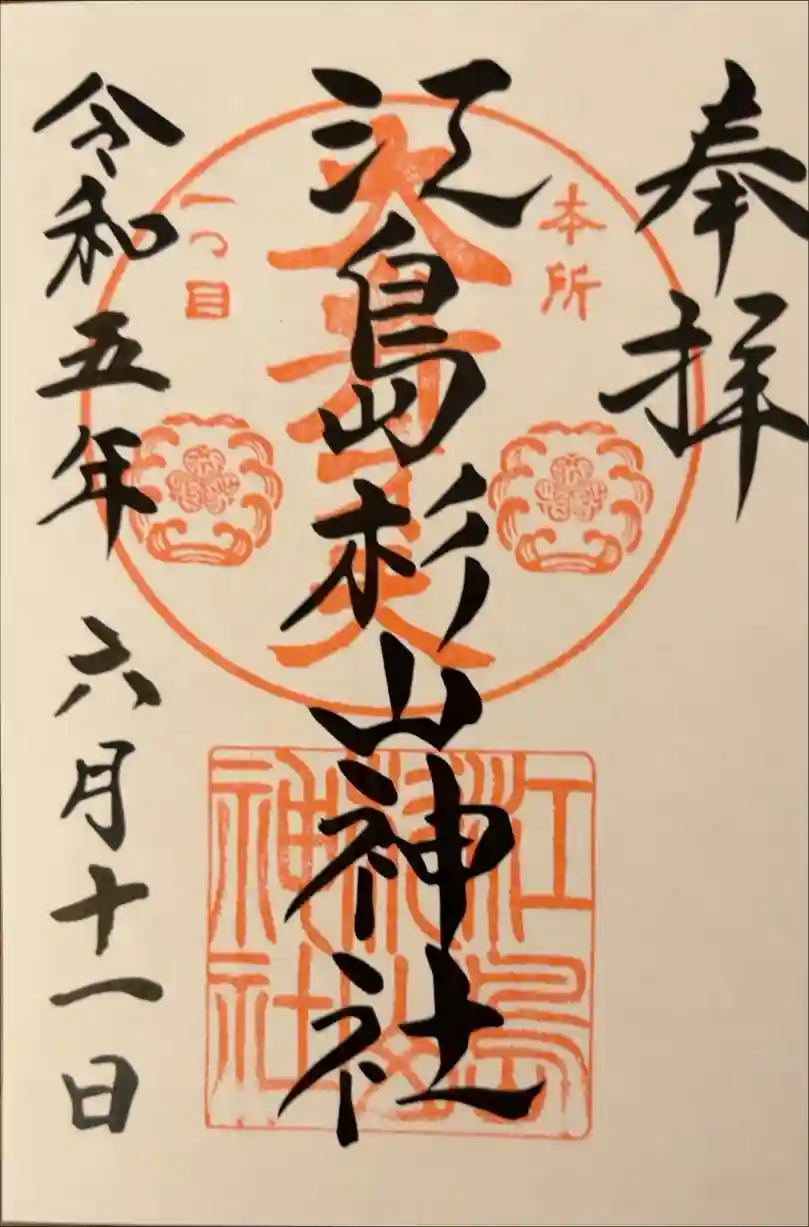 奉拝
本所
江島杉山神社
一つ目
江島杉山神社
令和五年 六月十一日